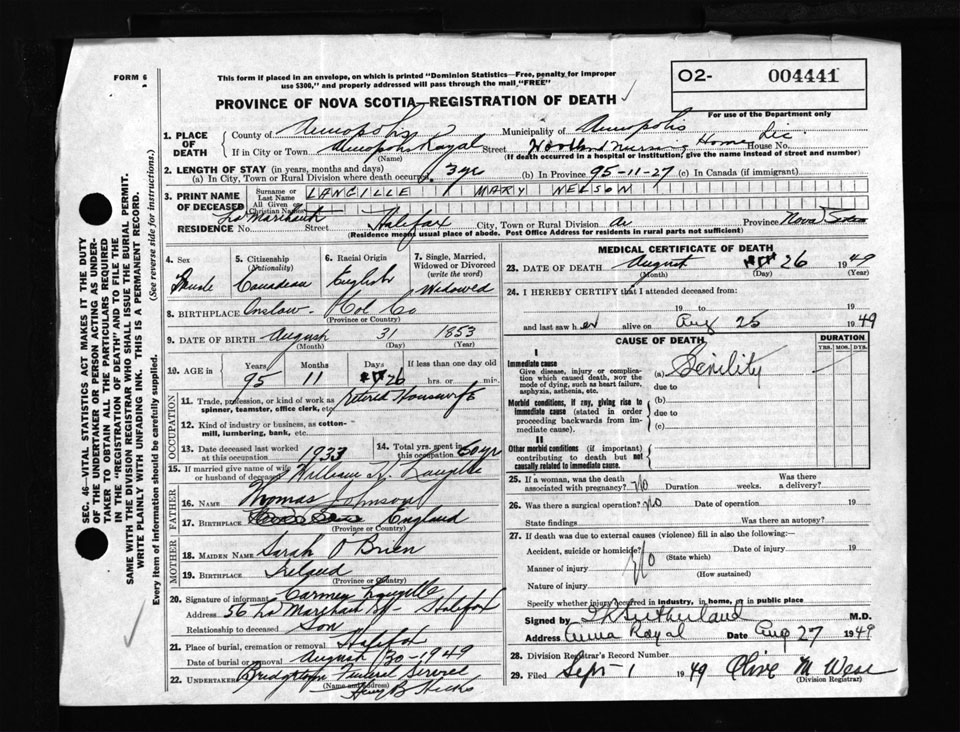 FORM 6
This form if placed in an envelope, on which is printed "Dominion Statistics—Free, penalty for improper
use $300," and properly addressed will pass through the mail "FREE"
O2- 004441
For use of the Department only
PROVINCE OF NOVA SCOTIA—REGISTRATION OF DEATH
1. PLACE OF DEATH County of Annapolis Municipality of Annapolis Lic.
If in City or Town Annapolis Royal Street Woodland Nursing Home House No.
(Name) (If death occurred in a hospital or institution, give the name instead of street and number)
2. LENGTH OF STAY (in years, months and days)
(a) In City, Town or Rural Division where death occurred 3 yr (b) In Province 95-11-27 (c) In Canada (if immigrant)
3. PRINT NAME OF DECEASED Surname or Last Name LANGILLE MARY NELSON
All Given or Christian Names
RESIDENCE No. La Marchant Street Halifax City, Town or Rural Division Province Nova Scotia
(Residence means usual place of abode. Post Office Address for residents in rural parts not sufficient)
4. Sex 5. Citizenship (Nationality) 6. Racial Origin 7. Single, Married, Widowed or Divorced (write the word)
Female Canadian English Widowed
8. BIRTHPLACE Onslow - Col Co
(Province or Country)
9. DATE OF BIRTH August 31 1853
(Month) (Day) (Year)
10. AGE in Years Months Days If less than one day old
95 11 26 hrs. or min.
OCCUPATION
11. Trade, profession, or kind of work as spinner, teamster, office clerk, etc. Retired Housewife
12. Kind of industry or business, as cotton-mill, lumbering, bank, etc.
13. Date deceased last worked at this occupation 1933 14. Total yrs. spent in this occupation 60 yr
15. If married give name of wife or husband of deceased William R. Langille
FATHER
16. NAME Thomas Johnson
17. BIRTHPLACE England
(Province or Country)
MOTHER
18. MAIDEN NAME Sarah O'Brien
19. BIRTHPLACE Ireland
(Province or Country)
20. Signature of informant Carmen Langille
Address 56 La Marchant St - Halifax
Relationship to deceased Son
21. Place of burial, cremation or removal Halifax
Date of burial or removal August 30-1949
22. UNDERTAKER Bridgetown Funeral Service
(Name and Address) Harry B Hicks
MEDICAL CERTIFICATE OF DEATH
23. DATE OF DEATH August 26 1949
(Month) (Day) (Year)
24. I HEREBY CERTIFY that I attended deceased from:
19 to 19
and last saw her alive on Aug 25 1949
CAUSE OF DEATH DURATION
YRS. MOS. DYS.
I
Immediate cause
Give disease, injury or complication which caused death, not the mode of dying, such as heart failure, asphyxia, asthenia, etc.
(a) Senility
due to
Morbid conditions, if any, giving rise to immediate cause (stated in order proceeding backwards from immediate cause).
(b)
due to
(c)
II
Other morbid conditions (if important) contributing to death but not causally related to immediate cause.
25. If a woman, was the death associated with pregnancy? No Duration weeks. Was there a delivery?
26. Was there a surgical operation? No Date of operation 19
State findings Was there an autopsy?
27. If death was due to external causes (violence) fill in also the following:
Accident, suicide or homicide? No Date of injury 19
(State which)
Manner of injury
(How sustained)
Nature of injury
Specify whether injury occurred in industry, in home, or in public place
Signed by Sutherland M.D.
Address Anna Royal Date Aug 27 1949
28. Division Registrar's Record Number
29. Filed Sept 1 1949 Olive M Wear
(Division Registrar)
SEC. 46—VITAL STATISTICS ACT MAKES IT THE DUTY
OF THE UNDERTAKER OR PERSON ACTING AS UNDER-
TAKER TO OBTAIN ALL THE PARTICULARS REQUIRED
IN THE "REGISTRATION OF DEATH" AND TO FILE THE
SAME WITH THE DIVISION REGISTRAR WHO SHALL ISSUE THE BURIAL PERMIT.
WRITE PLAINLY WITH UNFADING INK. THIS IS A PERMANENT RECORD.
Every item of information should be carefully supplied. (See reverse side for instructions.)